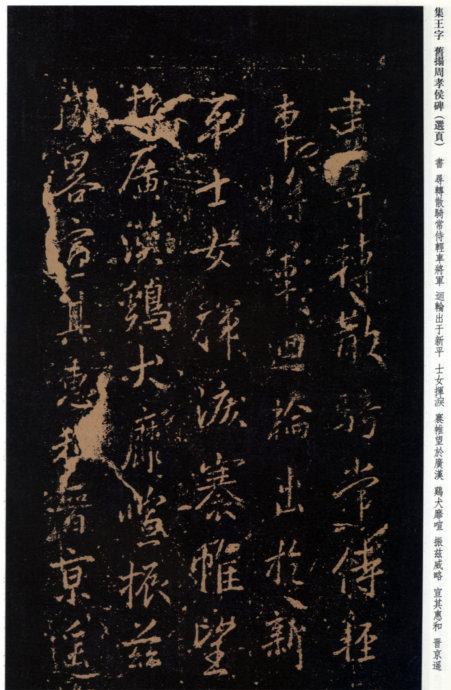 集王字 舊搨周孝侯碑（選頁） 書 尋轉散騎常侍輕車將軍 迴輪出于新平 士女揮淚 褰帷望於廣漢 鷄犬靡喧 振兹威略 宣其惠和 晉京遥
書尋轉散騎常侍輕
車將軍迴輪出於新
平士女揮淚褰帷望
於廣漢鷄犬靡喧振兹
威略宣其惠和晉京遥